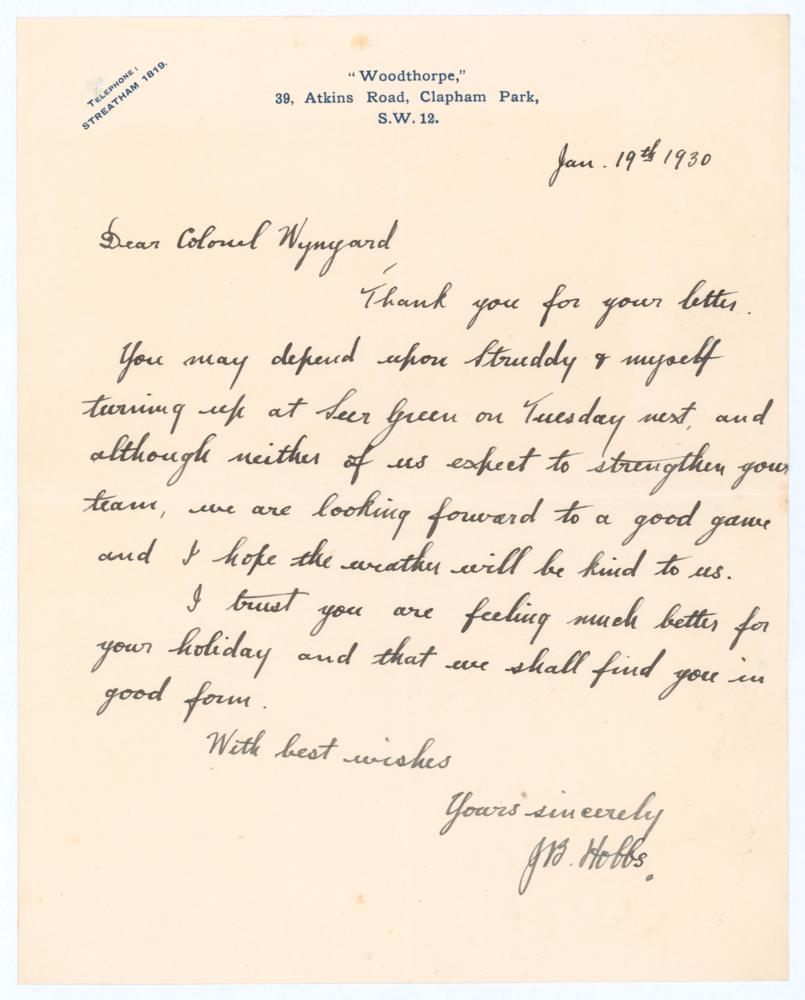 TELEPHONE:
STREATHAM 1819.
"Woodthorpe,"
39, Atkins Road, Clapham Park,
S.W. 12.
Jan. 19th 1930
Dear Colonel Wynyard
Thank you for your letter.
You may depend upon Struddy & myself
turning up at Seer Green on Tuesday next, and
although neither of us expect to strengthen your
team, we are looking forward to a good game
and I hope the weather will be kind to us.
I trust you are feeling much better for
your holiday and that we shall find you in
good form.
With best wishes
Yours sincerely
JB. Hobbs.